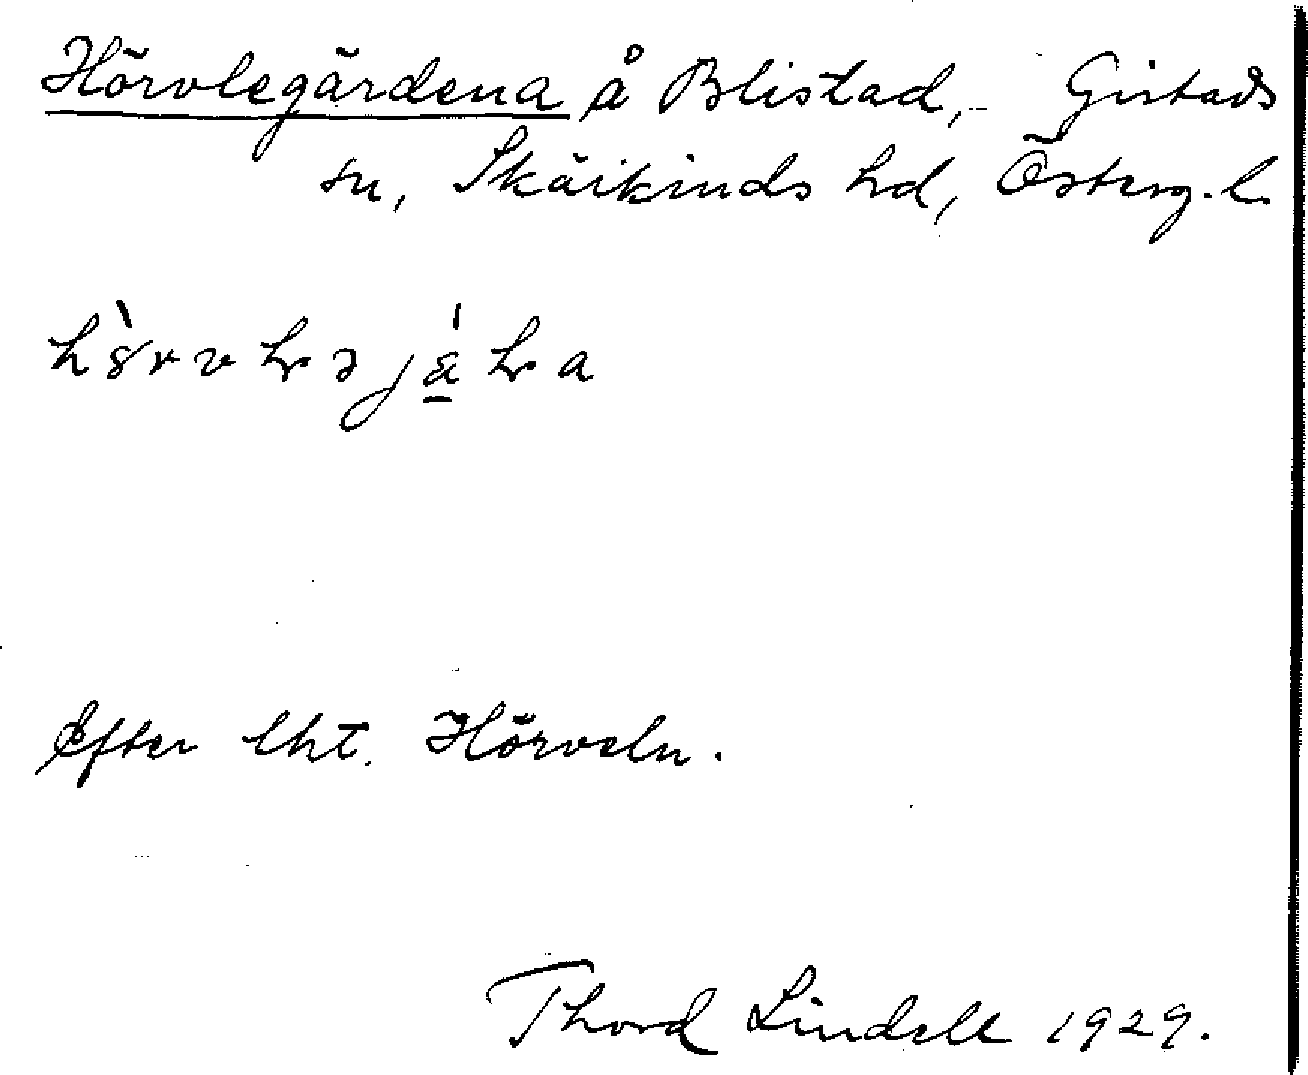 Hörvlegärdena å Blistad, Gistads
sn, Skärkinds hd, Österg. l.
Efter lht. Hörveln.
Thord Lindell 1929.